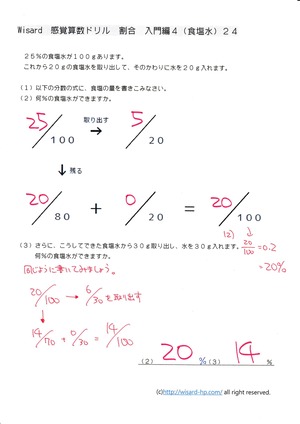 Wisard 感覚算数ドリル 割合 入門編4(食塩水)24
25%の食塩水が100gあります。
これから20gの食塩水を取り出して、そのかわりに水を20g入れます。
(1)以下の分数の式に、食塩の量を書きこみなさい。
(2)何%の食塩水ができますか。
25/100 取り出す → 5/20
↓ 残る
20/80 + 0/20 = 20/100
(2) ↓
(3)さらに、こうしてできた食塩水から30g取り出し、水を30g入れます。 20/100=0.2
何%の食塩水ができますか。 =20%
同じように書いてみましょう。
20/100 → 6/30を取り出す
14/70 + 0/30 = 14/100
(2) 20 % (3) 14 %
(c)http://wisard-hp.com/ all right reserved.